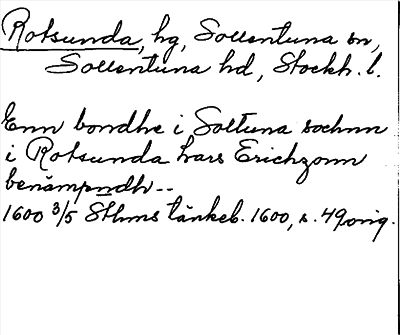 Rotsunda, hg, Sollentuna sn,
Sollentuna hd, Stockh. l.
Enn bondhe i Soltuna sochnn
i Rotsunda Lars Erichzonn
benämpndh--
1600 3/5 Sthms tänkeb. 1600, s. 49 orig.